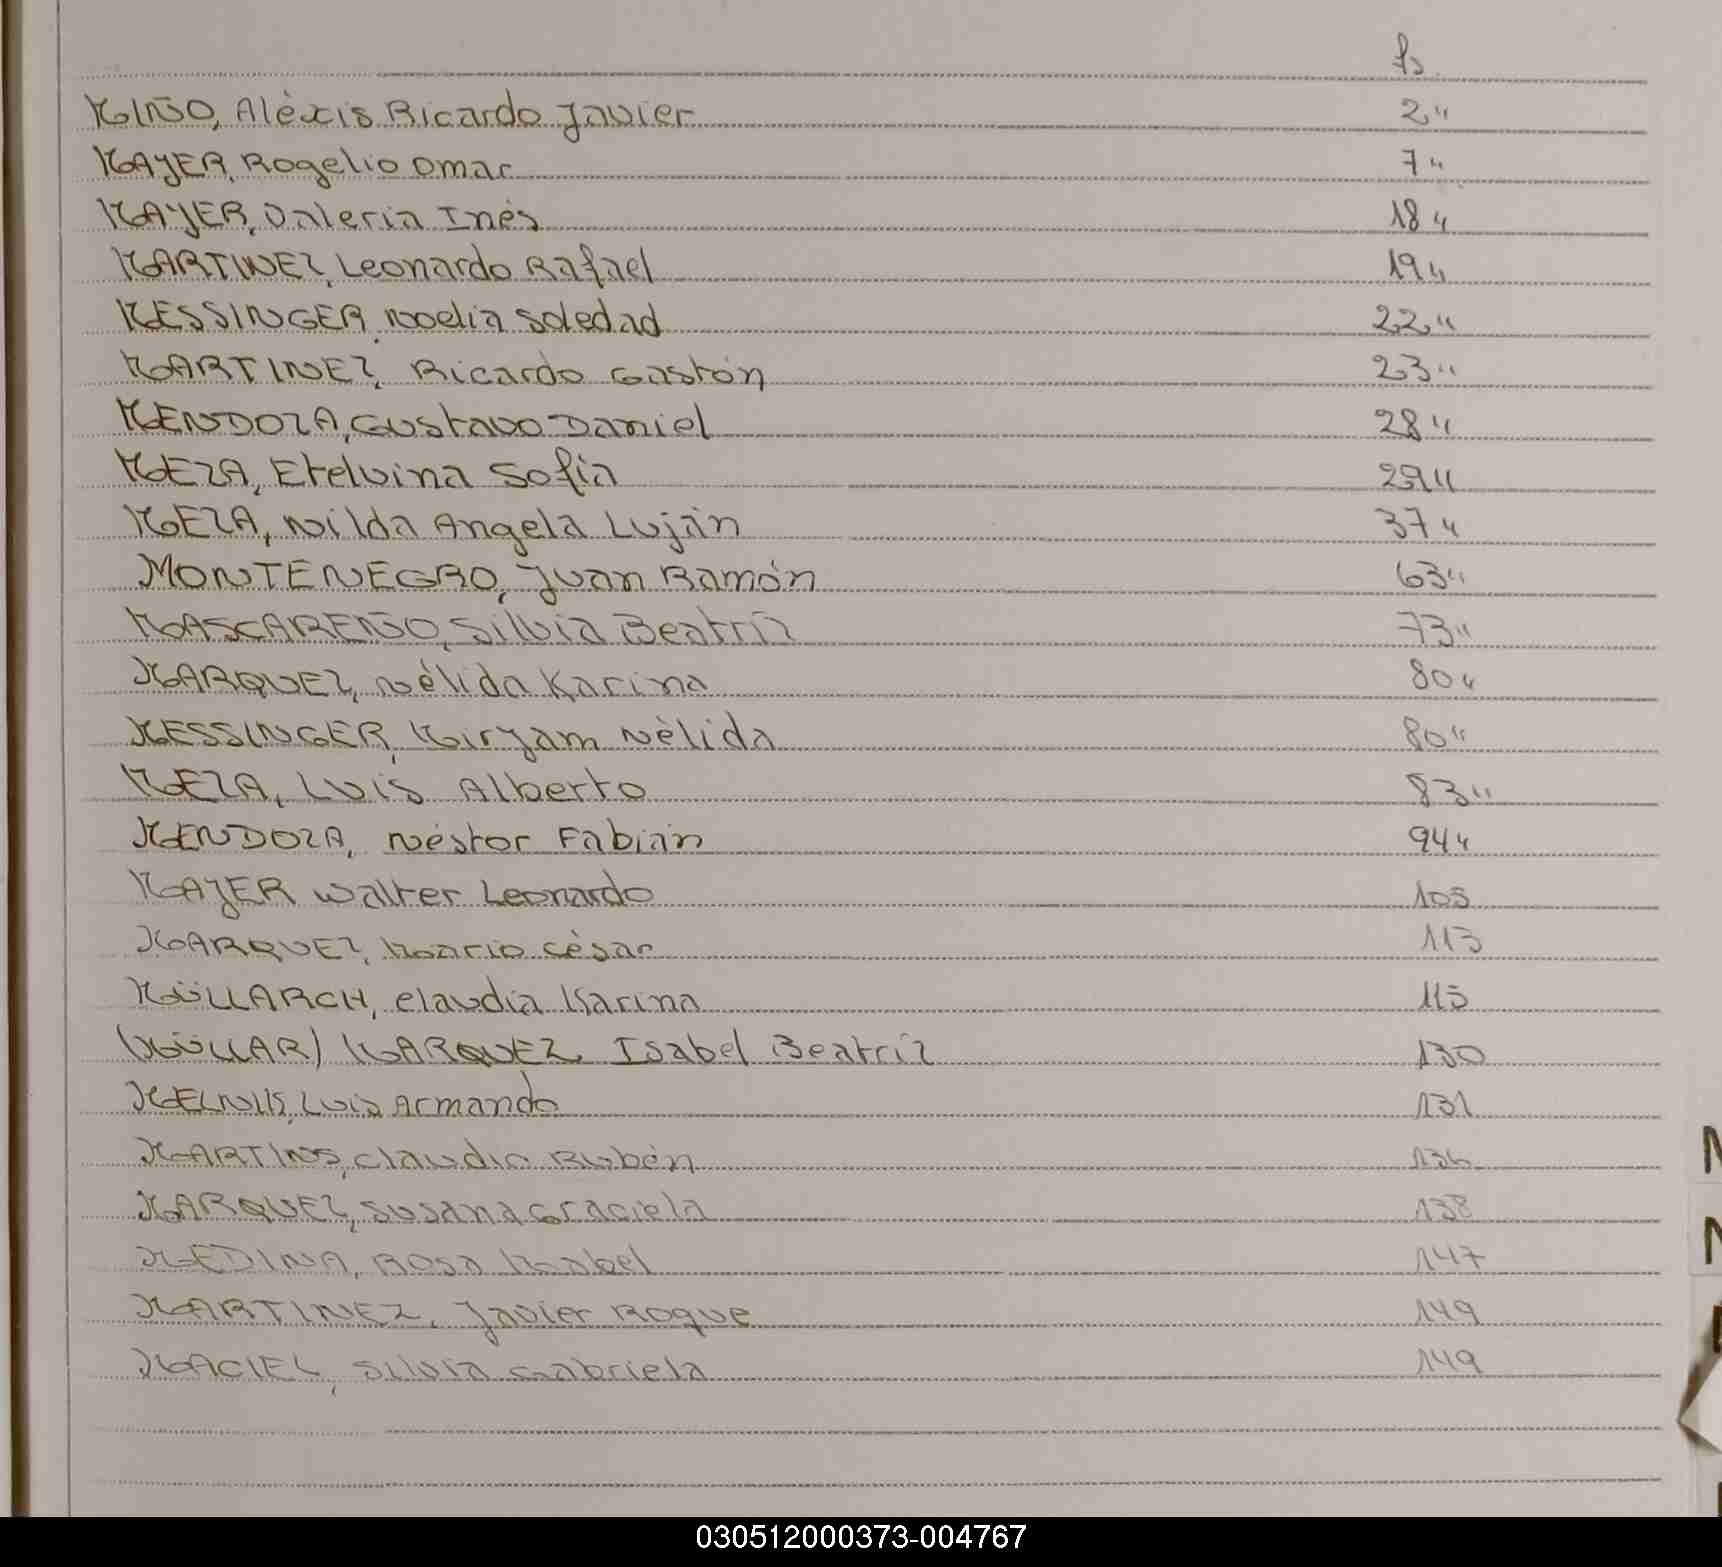 fs
MIÑO, Aléxis Ricardo Javier 2"
MAYER, Rogelio Omar 7"
MAYER, Valeria Inés 18"
MARTINEZ, Leonardo Rafael 19"
MESSINGER, Noelia Soledad 22"
MARTINEZ, Ricardo Gastón 23"
MENDOZA, Gustavo Daniel 28"
MEZA, Etelvina Sofía 29"
MEZA, Nilda Angela Luján 37"
MONTENEGRO, Juan Ramón 63"
MASCAREÑO, Silvia Beatriz 73"
MARQUEZ, Nélida Karina 80"
MESSINGER, Miryam Nélida 80"
MEZA, Luis Alberto 83"
MENDOZA, Néstor Fabián 94"
MAYER Walter Leonardo 105
MARQUEZ, Mario César 113
MÜLLARCH, Claudia Karina 115
(MÜLLAR) MARQUEZ Isabel Beatriz 130
Luis Armando 131
MARTINS, Claudio Rubén 136
MARQUEZ, Susana Graciela 138
MEDINA, Rosa Mabel 147
MARTINEZ, Javier Roque 149
MACIEL, Silvia Gabriela 149
030512000373-004767